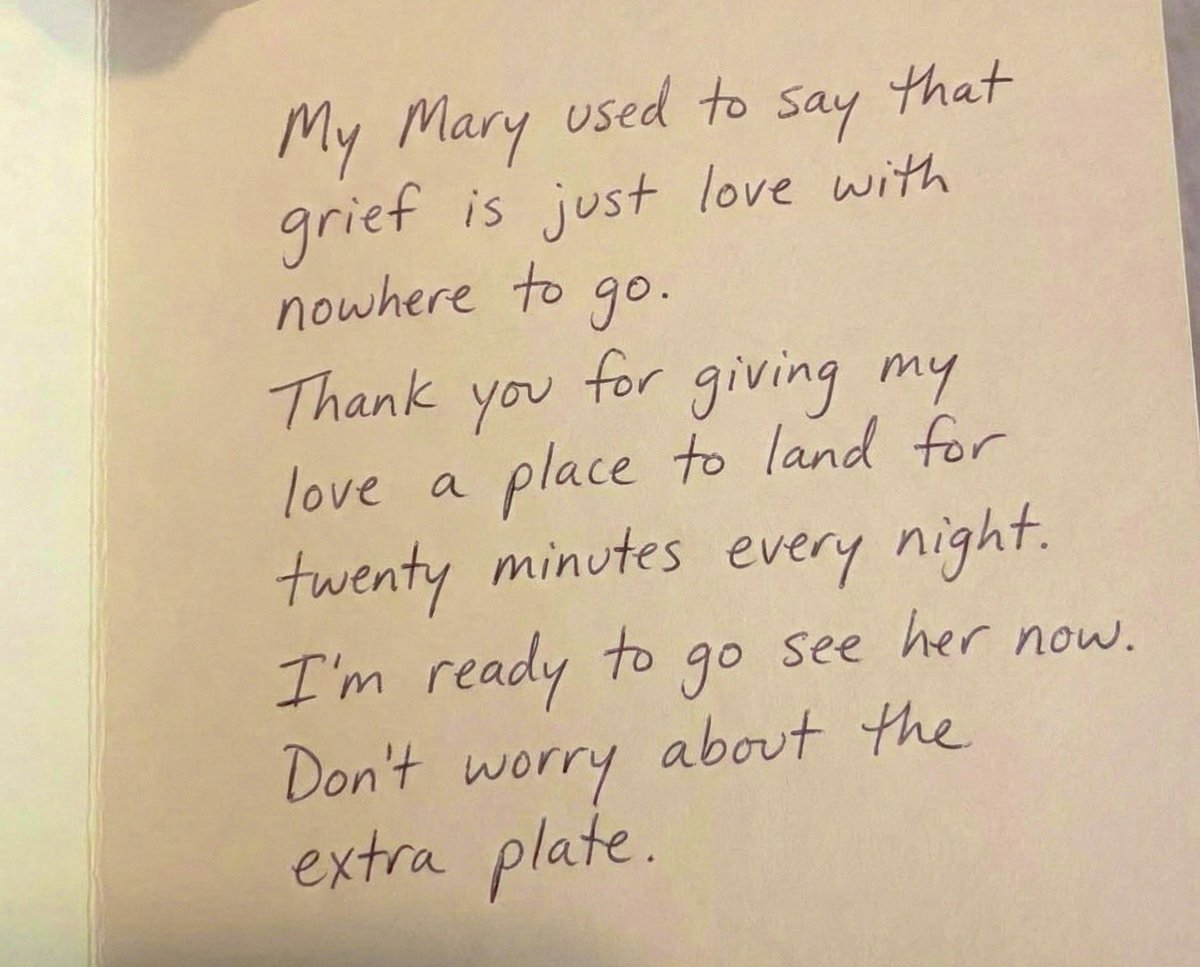 My Mary used to say that
grief is just love with
nowhere to go.
Thank you for giving my
love a place to land for
twenty minutes every night.
I'm ready to go see her now.
Don't worry about the
extra plate.